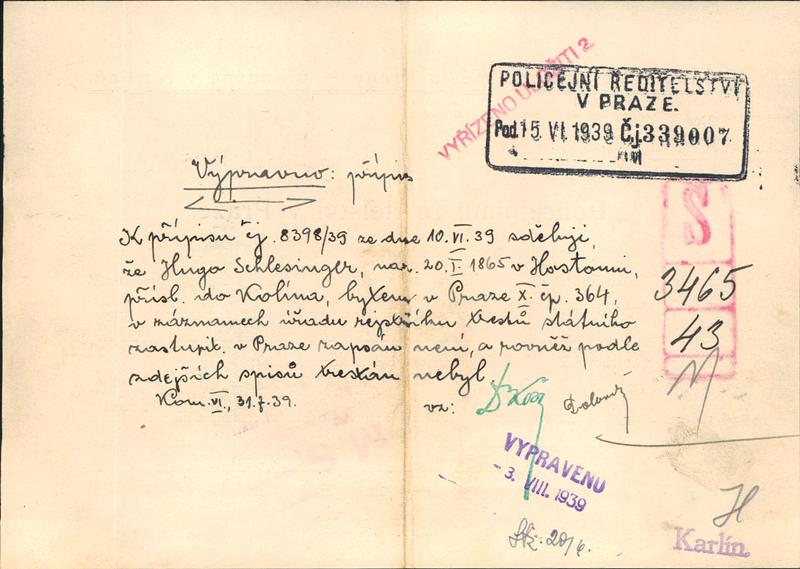 VYŘÍZENO
POLICEJNÍ ŘEDITELSTVÍ
V PRAZE.
Pod. 15 VI. 1939 Čj 339007
Výpravno: přípis
K přípisu čj. 8398/39 ze dne 10. VI. 39 sděluji,
že Hugo Schlesinger, nar. 20. I. 1865 v Hostomi,
přísl. do Kolína, bytem v Praze X. čp. 364,
v záznamech úřadu rejstříku trestů státního
zastupit. v Praze zapsán není, a rovněž podle
zdejších spisů trestán nebyl.
Kom. VI., 31.7.39.
vz:
S
3465
43
VYPRAVENO
-3. VIII. 1939
20/6.
H
Karlín.